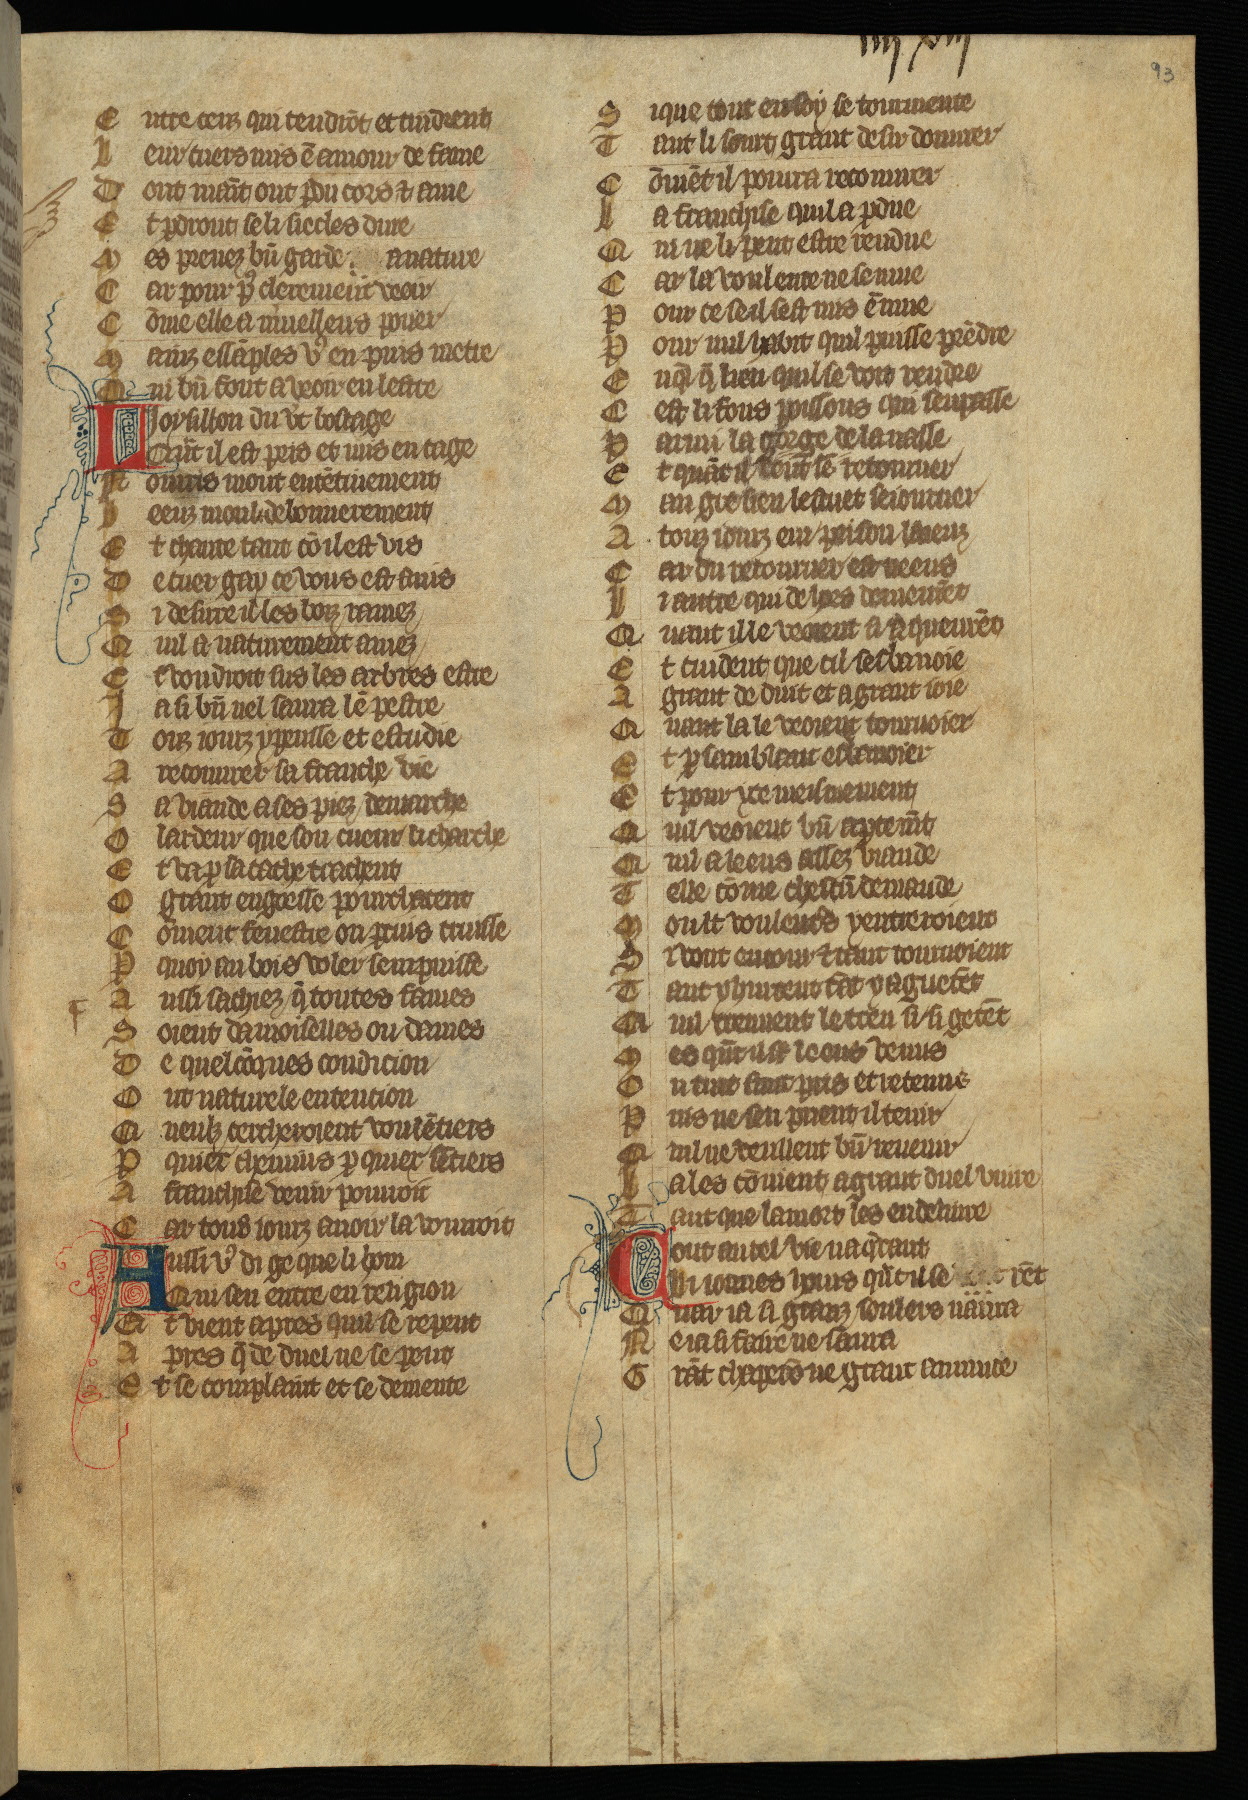 iiii xiii
93
E ntre ceus qui tendrõt et tindrent
L eur cuers mis ẽ amour de fame
D ont maĩt ont pdu cors & ame
E t pdront se li siecles dure
M es prenez bñ garde a nature
C ar pour pꝰ clerement veoir
C õme elle a mueilleus pouer
M ainz essãples vꝰ en puis metre
Q ui bñ font a veoir en lettre
L oysillon du vt boscage
Q ñt il est pris et mis en cage
N ourris mout ententiuement
L eenz moult debonnerement
E t chante tant cõ il est vis
D e cuer gay ce vous est auis
S i desirre il les bois ramez
Q uil a naturement amez
E t voudroit sus les arbres estre
J a si bñ nel saura lẽ pestre
T ouz iourz y pensse et estudie
A recouurer sa franche vie
S a viande a ses piez demarche
O lardeur que son cueur li charche
E t va p sa cache trachent
O grant engoesse pourchacent
C õment fenestre ou ptuis truisse
P quoy au bois voler sempuisse
A ussi sachiez q̃ toutes fames
S oient damoiselles ou dames
D e quelcõques condicion
O nt naturele entention
Q ueulz cercheroient voulẽtiers
P quier chemins p quier sẽtiers
A franchise venir pourroit
C ar touz iourz auoir la vouroit
A ussi vꝰ di ge que li hom
Q ui sen entre en religion
E t vient apres quil se repent
A pres q̃ de duel ne se pent
E t se complaint et se demente
S ique tout en soy se tourmente
T ant li sourt grant desir donner
C õmẽt il pourra recouurer
L a franchise quil a pdue
Q ui ne li peut estre rendue
C ar la voulente ne se mue
P our ce seil sest mis ẽ mue
P our nul habit quil puisse prẽdre
E nq̃l q̃ lieu quil se voit rendre
C est li fous poissons qui sen passe
P armi la gorge de la nasse
E t quãt il veut se retourner
M au gre sien lestuet seiourner
A touz iourz em prison leenz
C ar du retourner est neens
L i autre qui dehors demeurẽt
Q uant il le voient si aqueurẽt
E t cuident que cil sesbanoie
A grant deduit et a grant ioie
Q uant la le voient tournoier
E t p samblant esbanoier
E t pour yce meismement
Q uil voient bñ aptemt̃
Q uil a leens assez viande
T elle cõme chescũ demande
M oult voulentꝰs y entreroient
S i vont entour & tant tournoient
T ant y hurtent tãt y aguetẽt
Q uil treuuent le treu si si getẽt
M es qñt il st leens venus
O u tuit sont pris et retenus
P uis ne sen puent il tenir
Q uil ne veullent bñ reuenir
L a les cõuient a grant duel viure
T ant que la mort les en deliure
T out autel vie va q̃rant
L i iounes hons qñt il se rẽt
Q uar ia si granz soulers naura
N e ia si faire ne saura
G rãt chaperõ ne grant aumuce